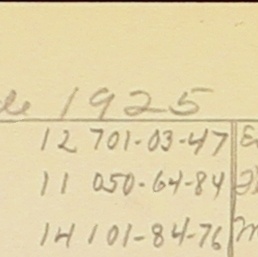 1925
12 701-03-47
11 050-64-84
14 101-84-76